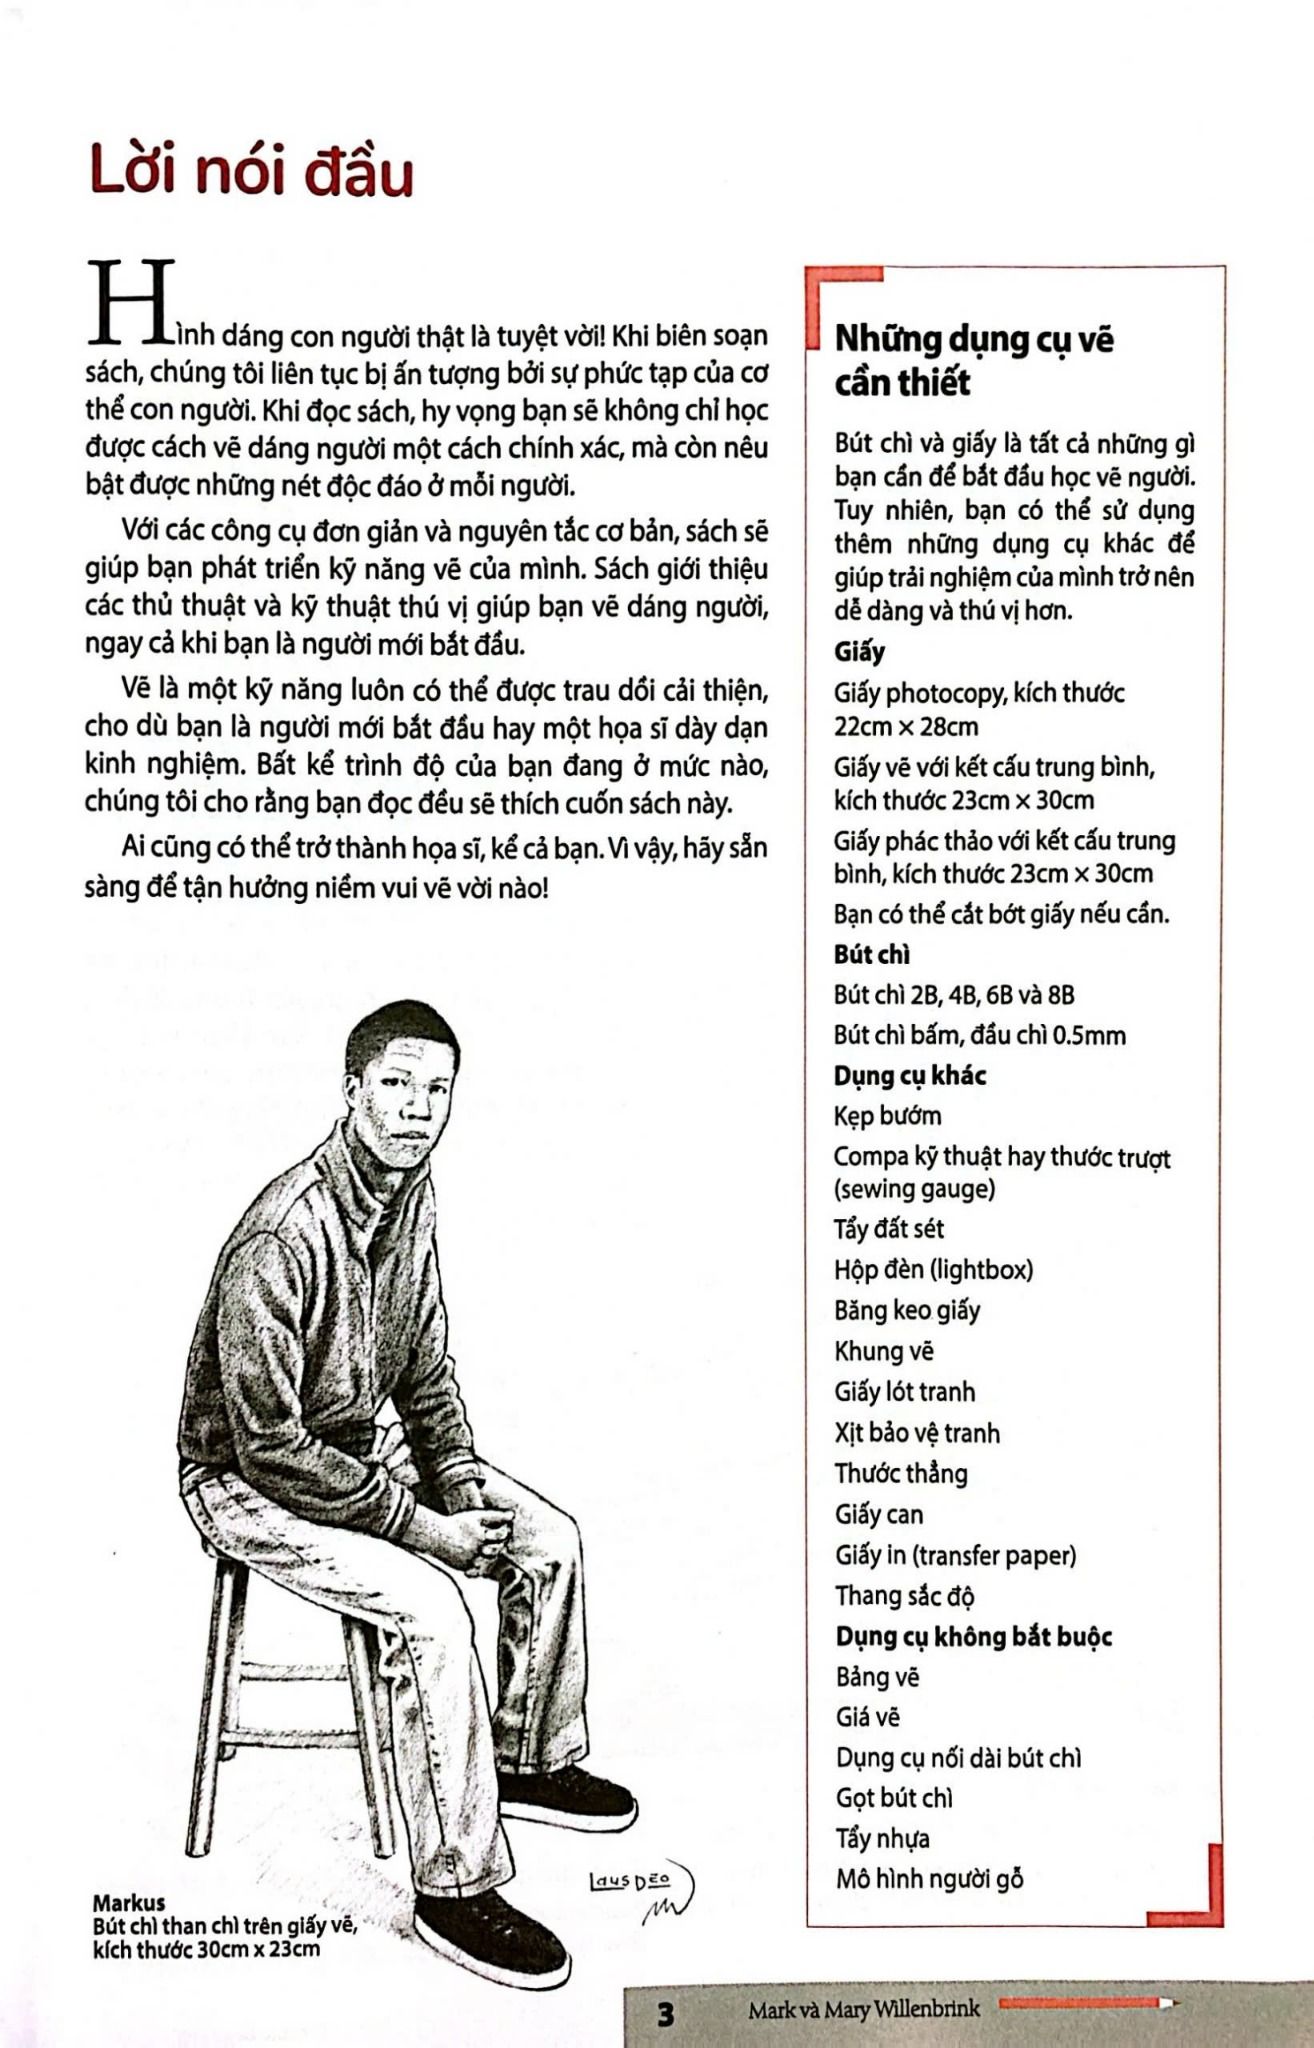 Lời nói đầu
Hình dáng con người thật là tuyệt vời! Khi biên soạn
sách, chúng tôi liên tục bị ấn tượng bởi sự phức tạp của cơ
thể con người. Khi đọc sách, hy vọng bạn sẽ không chỉ học
được cách vẽ dáng người một cách chính xác, mà còn nêu
bật được những nét độc đáo ở mỗi người.
Với các công cụ đơn giản và nguyên tắc cơ bản, sách sẽ
giúp bạn phát triển kỹ năng vẽ của mình. Sách giới thiệu
các thủ thuật và kỹ thuật thú vị giúp bạn vẽ dáng người,
ngay cả khi bạn là người mới bắt đầu.
Vẽ là một kỹ năng luôn có thể được trau dồi cải thiện,
cho dù bạn là người mới bắt đầu hay một họa sĩ dày dạn
kinh nghiệm. Bất kể trình độ của bạn đang ở mức nào,
chúng tôi cho rằng bạn đọc đều sẽ thích cuốn sách này.
Ai cũng có thể trở thành họa sĩ, kể cả bạn. Vì vậy, hãy sẵn
sàng để tận hưởng niềm vui vẽ vời nào!
Laus Deo
Markus
Bút chì than chì trên giấy vẽ,
kích thước 30cm x 23cm
Những dụng cụ vẽ
cần thiết
Bút chì và giấy là tất cả những gì
bạn cần để bắt đầu học vẽ người.
Tuy nhiên, bạn có thể sử dụng
thêm những dụng cụ khác để
giúp trải nghiệm của mình trở nên
dễ dàng và thú vị hơn.
Giấy
Giấy photocopy, kích thước
22cm × 28cm
Giấy vẽ với kết cấu trung bình,
kích thước 23cm × 30cm
Giấy phác thảo với kết cấu trung
bình, kích thước 23cm × 30cm
Bạn có thể cắt bớt giấy nếu cần.
Bút chì
Bút chì 2B, 4B, 6B và 8B
Bút chì bấm, đầu chì 0.5mm
Dụng cụ khác
Kẹp bướm
Compa kỹ thuật hay thước trượt
(sewing gauge)
Tẩy đất sét
Hộp đèn (lightbox)
Băng keo giấy
Khung vẽ
Giấy lót tranh
Xịt bảo vệ tranh
Thước thẳng
Giấy can
Giấy in (transfer paper)
Thang sắc độ
Dụng cụ không bắt buộc
Bảng vẽ
Giá vẽ
Dụng cụ nối dài bút chì
Gọt bút chì
Tẩy nhựa
Mô hình người gỗ
3 Mark và Mary Willenbrink